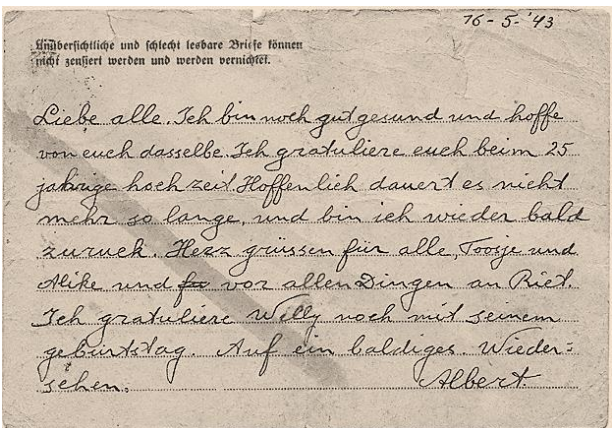 16-5-'43
Unübersichtliche und schlecht lesbare Briefe können
nicht zensiert werden und werden vernichtet.
Liebe alle. Ich bin noch gut gesund und hoffe
von euch dasselbe. Ich gratuliere euch beim 25
jahrige hochzeit. Hoffenlich dauert es nicht
mehr so lange, und bin ich wieder bald
zuruck. Herz grüssen für alle, Toosje und
Alike und vor allen Dingen an Riet.
Ich gratuliere Welly noch mit seinem
geburtstag. Auf ein baldiges Wieder=
sehen. Albert.